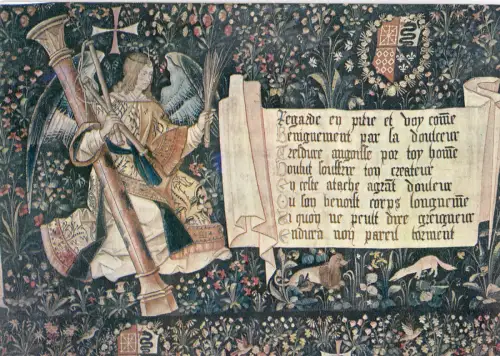 Regarde en pitie et voy cõme
Benignement par sa doulceur
Tresdure angoisse por toy hõme
Voulut souffrir ton createur
En ceste atache agrant douleur
Ou son benoist corps longuemẽt
A quoy ne peult dire greigneur
Endura non pareil torment